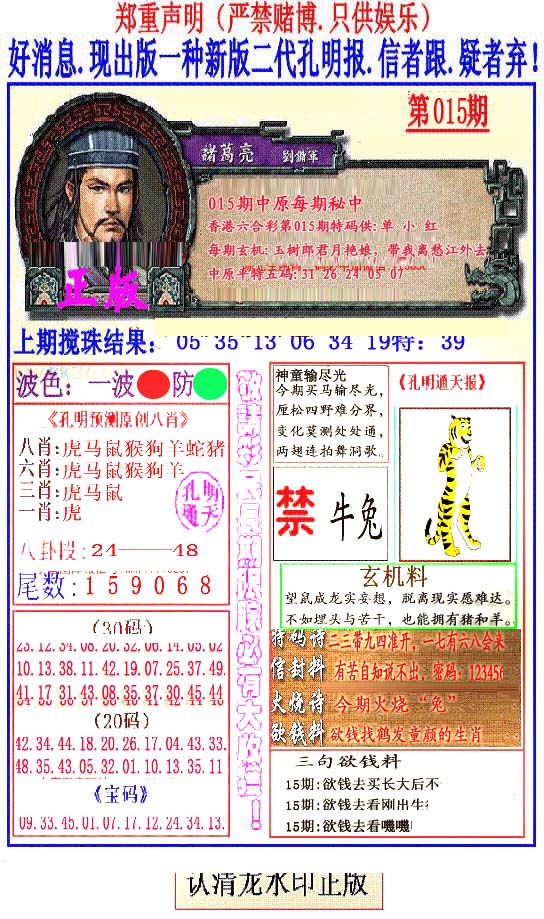 郑重声明（严禁赌博.只供娱乐）
好消息.现出版一种新版二代孔明报.信者跟.疑者弃!
第015期
諸葛亮 劉備軍
015期中原每期秘中
香港六合彩第015期特码供:单 小 红
每期玄机:玉树郎君月艳娘，带我离愁江外去
中原平特五码:31 26 24 05 07
正版
上期搅珠结果: 05 35 13 06 34 19特: 39
波色: 一波 防
《孔明预测原创八肖》
八肖:虎马鼠猴狗羊蛇猪
六肖:虎马鼠猴狗羊
三肖:虎马鼠
一肖:虎
孔明
通天
八卦段:24——48
尾数:159068
(30码)
23.12.34.08.20.32.06.14.05.02
10.13.38.11.42.19.07.25.37.49.
41.17.31.43.08.35.37.30.45.44
(20码)
42.34.44.18.20.26.17.04.43.33.
48.35.43.05.32.01.10.13.35.11
《宝码》
09.33.45.01.07.17.12.24.34.13.
神童输尽光
今期买马输尽光，
厘松四野难分界，
变化莫测处处通，
两翅连拍舞洞歌。
《孔明通天报》
禁 牛兔
玄机料
望鼠成龙实妄想，脱离现实愿难达。
不如埋头与苦干，也能拥有猪和羊。
特码诗 三三带九四准开，一七有六八会来
信封料 有苦自知说不出，密码：123456
火烧诗 今期火烧“兔”
欲钱料 欲钱找鹤发童颜的生肖
三句欲钱料
15期:欲钱去买长大后不
15期:欲钱去看刚出生
15期:欲钱去看嘰嘰
认清龙水印正版